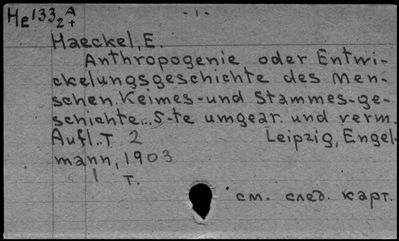 HE 133 A
2+
- 1 -
Haeckel, E.
Anthropogenie oder Entwi-
ckelungsgeschichte des men-
schen. Keimes-und Stammes-ge-
schichte... 5-te umgear. und verm.
Aufl.. T 2 Leipzig, Engel-
mann, 1903
1 т.
см. след. карт.